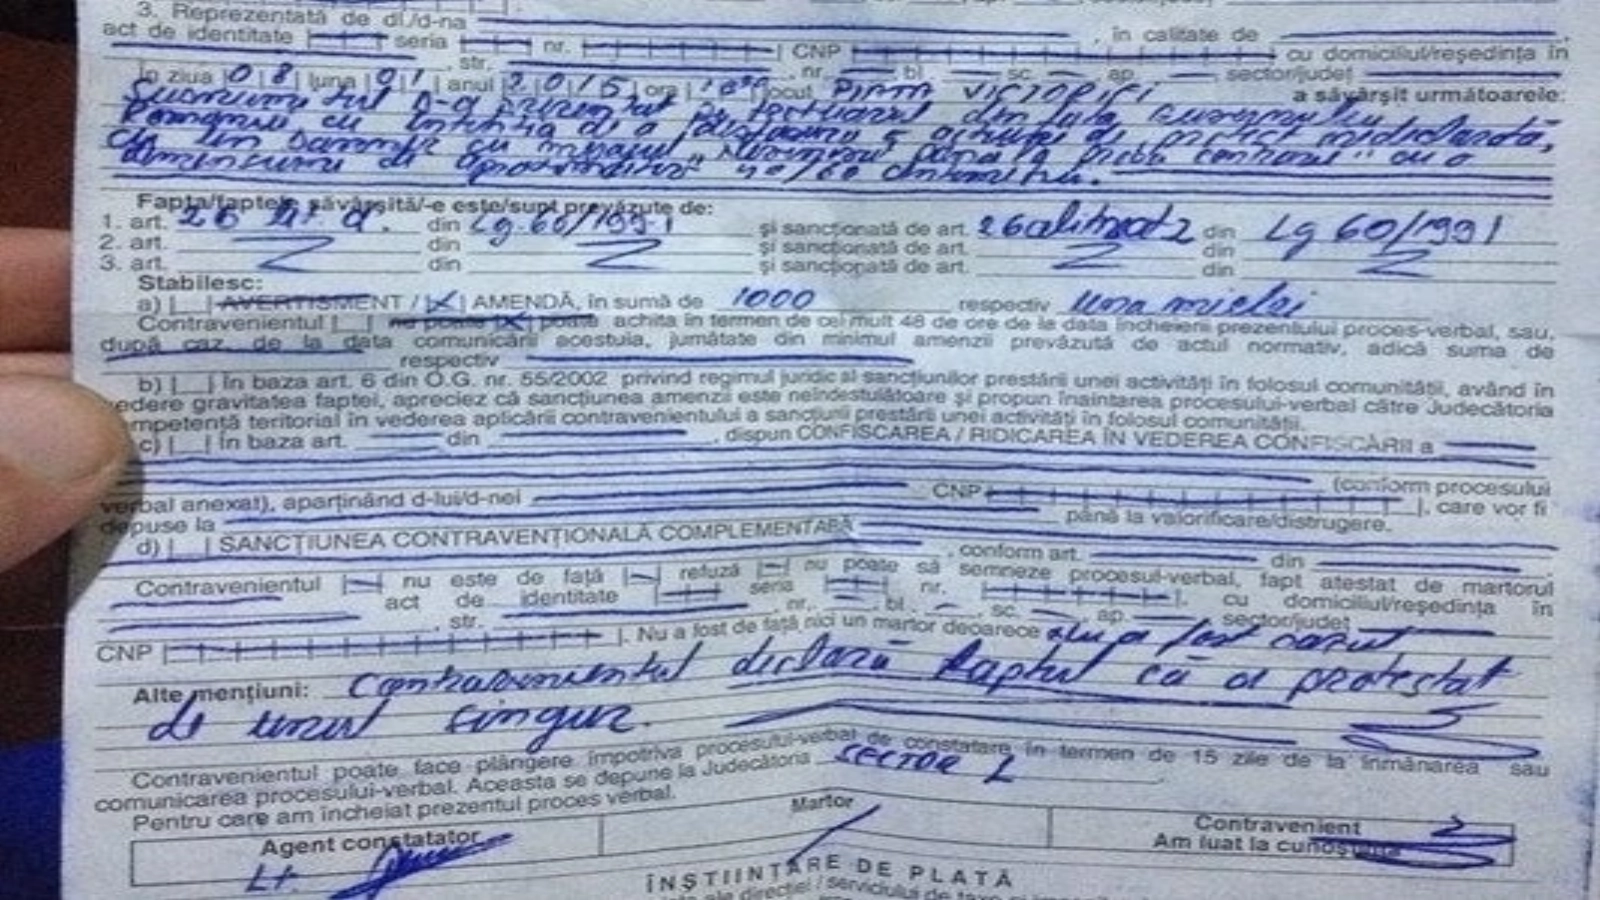 3. Reprezentată de dl./d-na , în calitate de
act de identitate seria nr. CNP cu domiciliul/reşedinţa în
str. nr. bl. sc. ap. sector/judeţ
În ziua 08 luna 01 anul 2015 ora locul PIAŢA VICTORIEI a săvârşit următoarele:
s-a prezentat pe trotuarul din faţa Guvernului
României cu intenţia de a desfăşura o acţiune de protest nedeclarată,
cu un banner cu mesajul până la proba contrarie" cu o
dimensiune de aproximativ 40/60 centimetri.
Fapta/faptele săvârşită/-e este/sunt prevăzute de:
1. art. 26 lit. a. din Lg. 60/1991 şi sancţionată de art. 26 din Lg 60/1991
2. art. din şi sancţionată de art. din
3. art. din şi sancţionată de art. din
Stabilesc:
a) |__| AVERTISMENT / |X| AMENDĂ, în sumă de 1000 respectiv una mie lei
Contravenientul |__| nu poate |X| poate achita în termen de cel mult 48 de ore de la data încheierii prezentului proces-verbal, sau,
după caz, de la data comunicării acestuia, jumătate din minimul amenzii prevăzută de actul normativ, adică suma de
respectiv
b) |__| în baza art. 6 din O.G. nr. 55/2002 privind regimul juridic al sancţiunilor prestării unei activităţi în folosul comunităţii, având în
edere gravitatea faptei, apreciez că sancţiunea amenzii este neîndestulătoare şi propun înaintarea procesului-verbal către Judecătoria
mpetentă teritorial în vederea aplicării contravenientului a sancţiunii prestării unei activităţi în folosul comunităţii.
c) |__| în baza art. din , dispun CONFISCAREA / RIDICAREA ÎN VEDEREA CONFISCĂRII a
(conform procesului
verbal anexat), aparţinând d-lui/d-nei CNP , care vor fi
depuse la până la valorificare/distrugere.
d) |__| SANCŢIUNEA CONTRAVENŢIONALĂ COMPLEMENTARĂ
, conform art. din
Contravenientul |__| nu este de faţă |__| refuză |__| nu poate să semneze procesul-verbal, fapt atestat de martorul
act de identitate seria nr. cu domiciliul/reşedinţa în
, str. , nr. bl. sc. ap. sector/judeţ
CNP . Nu a fost de faţă nici un martor deoarece nu a fost cazul
Alte menţiuni: Contravenientul declară faptul că a protestat
de unul singur.
Contravenientul poate face plângere împotriva procesului-verbal de constatare în termen de 15 zile de la înmânarea sau
comunicarea procesului-verbal. Aceasta se depune la Judecătoria SECTOR 1
Pentru care am încheiat prezentul proces verbal.
Agent constatator Martor Contravenient
Lt. Am luat la cunoştinţă
ÎNŞTIINŢARE DE PLATĂ
ale direcţiei / serviciului de taxe şi